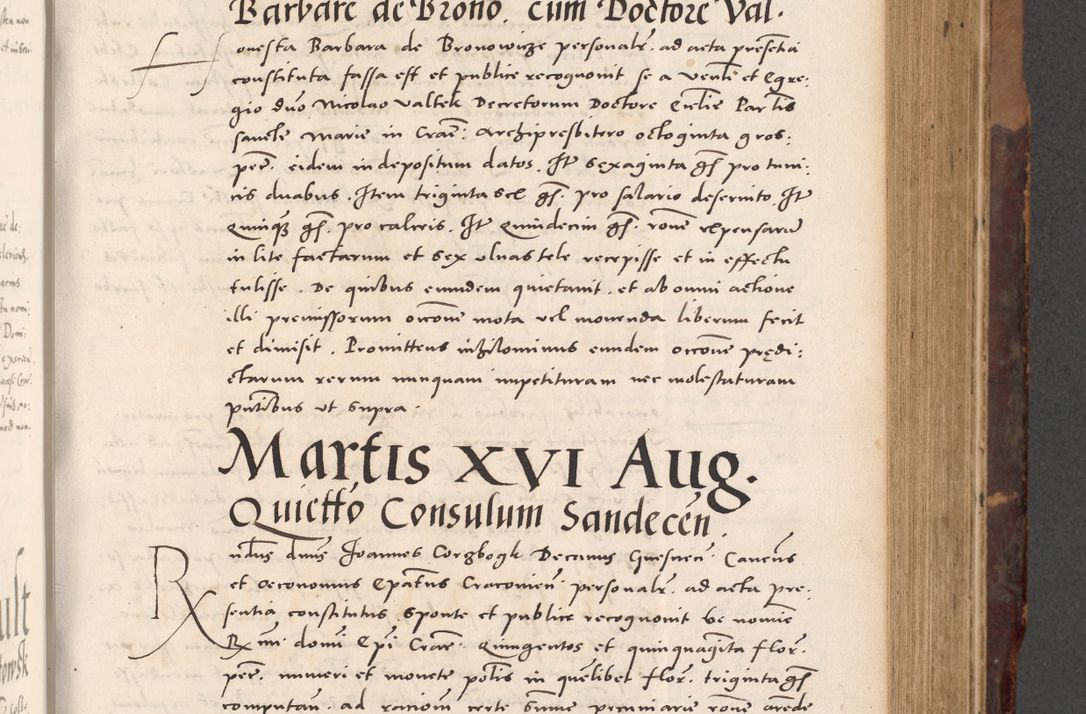 Barbare de Brono. cum Doctore Val.
Honesta Barbara de Bronowicze personalr. ad acta presentia
constituta fassa est et publice recognouit se a Venli et Egre:
gio dno Nicolao Valtek Decretorum Doctore Ecclie Parlis
sancte Marie in Crac: Archipresbitero octoginta gros:
per. eidem in depositum datos. Itē sexaginta gs. pro tuni:
cis duabus. Item triginta sex gs. pro salario deseruito. Itē
quinqz gs. pro calceis. Itē quindecim gs. rone expensarū
in lite factarum et sex vlnas tele recepisse et in effectu
tulisse. De quibus eundem quietauit. et ab omni actione
illi premissorum occone mota vel mouenda liberum fecit
et dimisit. Promittens nihilominus eundem occone prędi:
ctarum rerum nunquam impetituram nec molestaturam
pntibus vt supra.
Martis XVI Aug.
Quietto Consulum Sandecen.
Rndus dnus Joannes Decanus Canens
et Oeconomus Epatus Cracouien. personalr. ad acta pre:
sentia constitutus. sponte et publice recognouit se nomine
Rxmi domi Epi Crac. Quingentos et quinquaginta flor.
per. numeri et monete polis in quelibet flor. triginta gs
computan. ad racionem certe summe pecuniarie rone